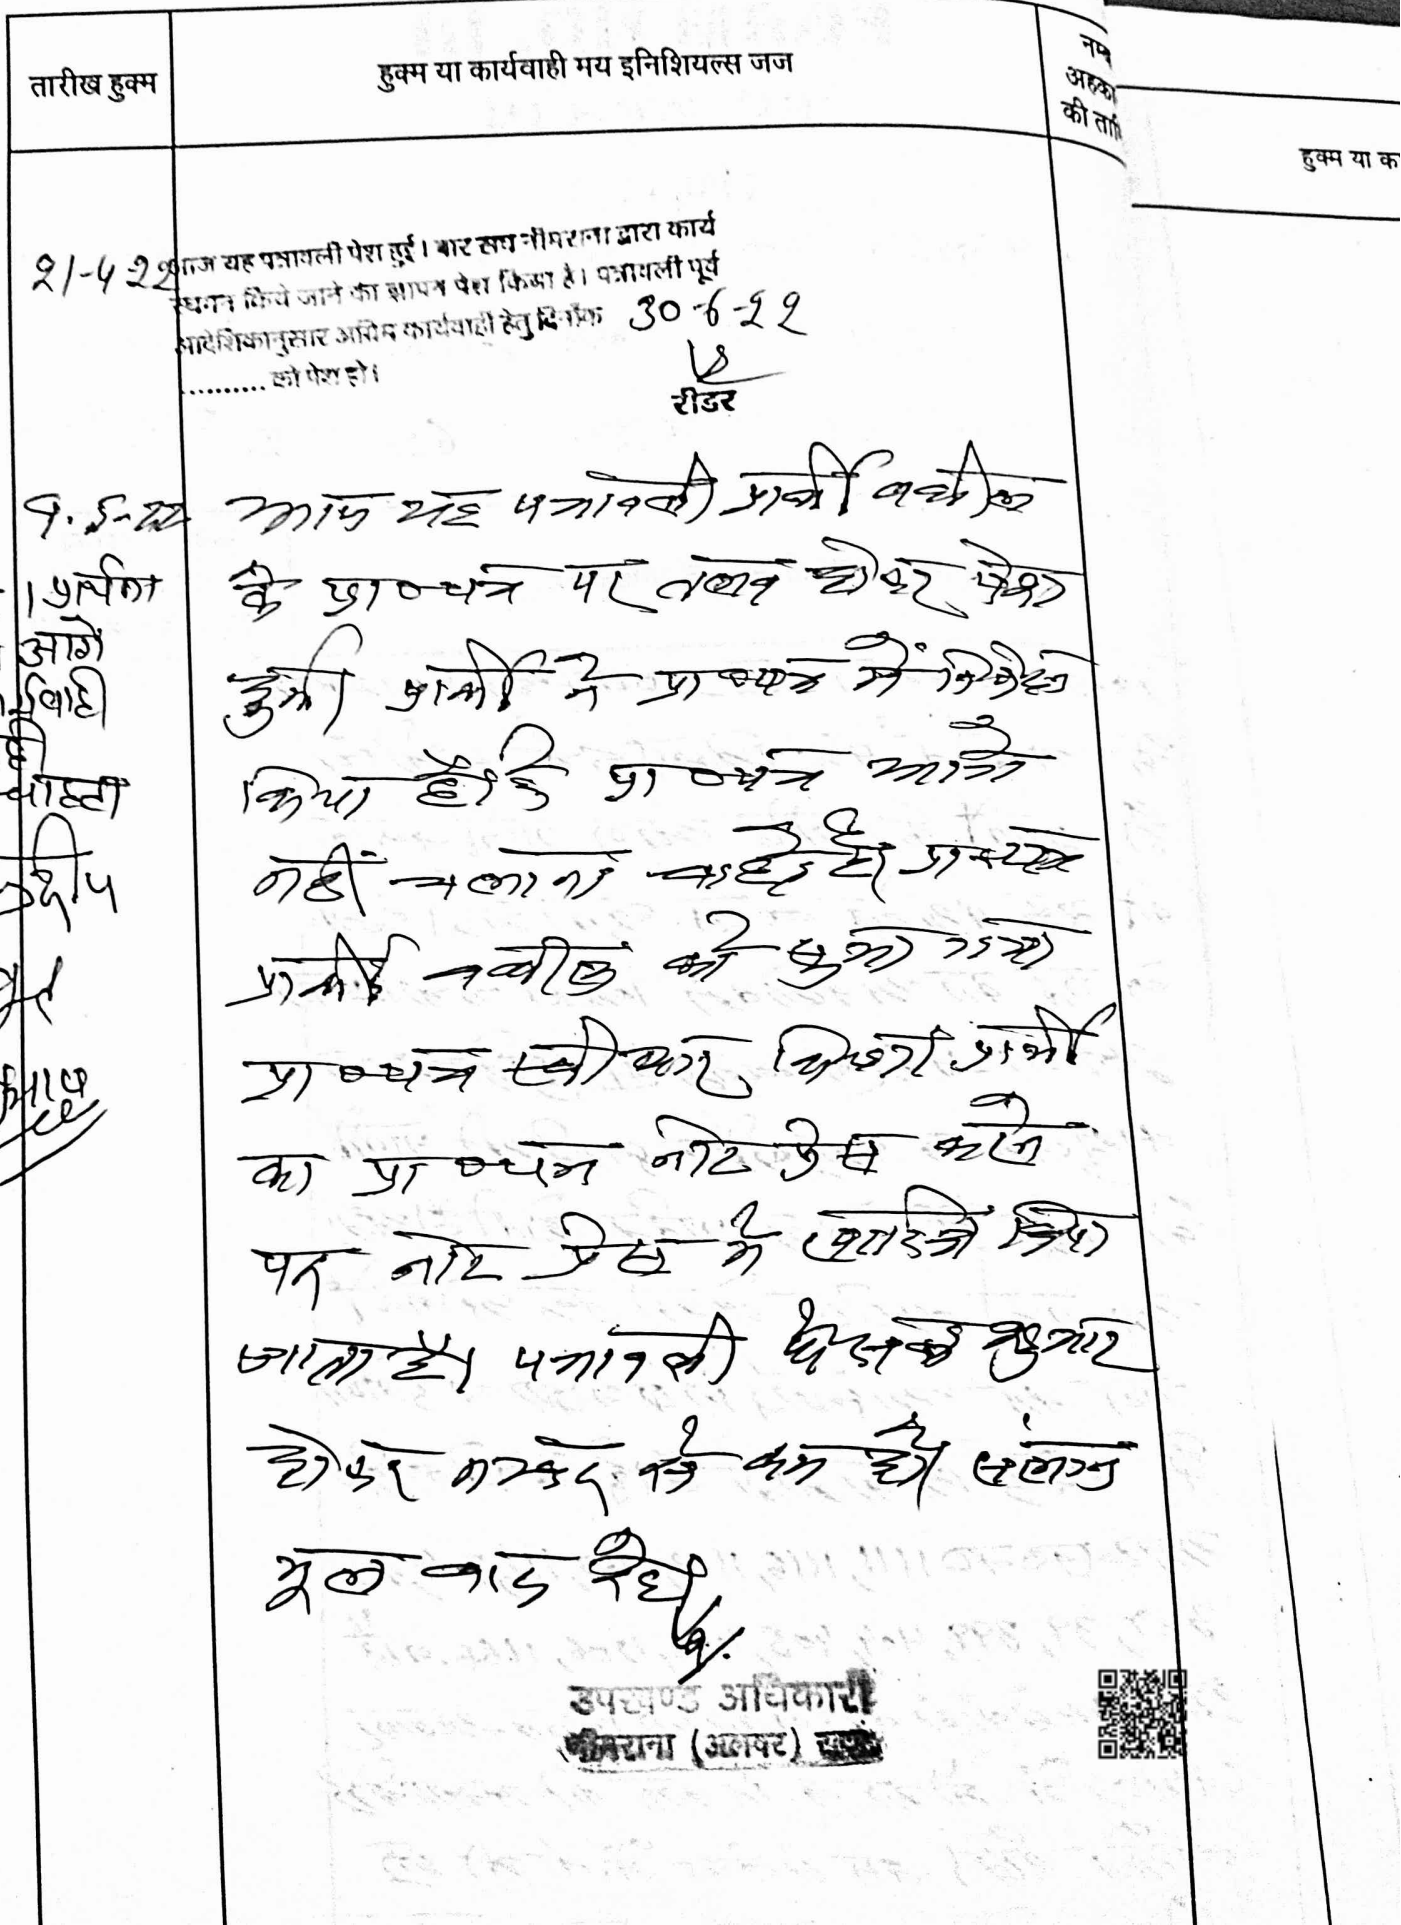 तारीख हुक्म
हुक्म या कार्यवाही मय इनिशियल्स जज
नम्ब
अहका
की ता
हुक्म या क
21-4-22
आज यह पत्रावली पेश हुई। बार संघ नीमराना द्वारा कार्य
स्थगन किये जाने का ज्ञापन पेश किया है। पत्रावली पूर्व
आदेशिकानुसार अग्रिम कार्यवाही हेतु दिनाँक 30-6-22
.......... को पेश हो।
रीडर
आज यह पत्रावली प्रार्थी वकील
के प्रा०पत्र पर तलब होकर पेश
हुई। प्रार्थी ने प्रा०पत्र में निवेदन
किया है कि प्रा०पत्र आगे
नहीं चलाना चाहते है। प्रा०पत्र
प्रार्थी वकील को सुना गया
प्रा०पत्र स्वीकार किया प्रार्थी
का प्रा०पत्र नोट प्रेस करने
पर नोट प्रेस में खारिज किया
जाता है। पत्रावली फैसल शुमार
होकर नम्बर से कम हो। संलग्न
मूल वाद रहे।
प्रार्थना
आगे
र्यवाही
उपखण्ड अधिकारी
नीमराना (अलवर) राज०